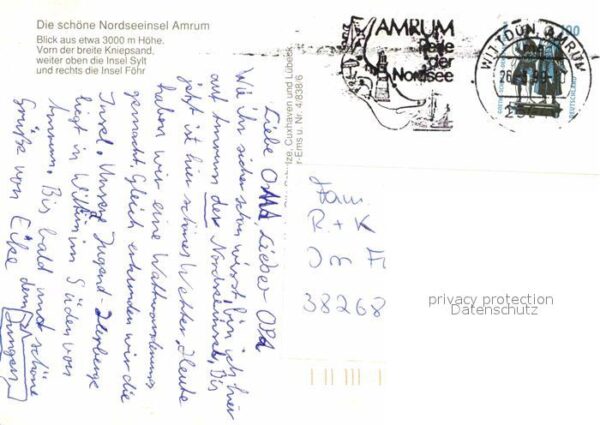 Die schöne Nordseeinsel Amrum
Blick aus etwa 3000 m Höhe.
Vorn der breite Kniepsand,
weiter oben die Insel Sylt
und rechts die Insel Föhr
AMRUM
Perle
der
Nordsee
WITTDÜN, AMRUM
100
Cuxhaven und Lübeck
Ems u. Nr. 4/838/6
Liebe OMA, Lieber OPA
Wie ihr sicher schon wisst, bin ich hier
auf Amrum der Nordseeinsel. Bis
jetzt ist hier schönes Wetter. Heute
haben wir eine Wattwanderung
gemacht. Gleich erkunden wir die
Insel. Unsere Jugend-Herberge
liegt in Wittdün im Süden von
Amrum. Bis bald und schöne
Grüße von Eike dem
Jungen
Fam.
R + K
Im
38268
privacy protection
Datenschutz